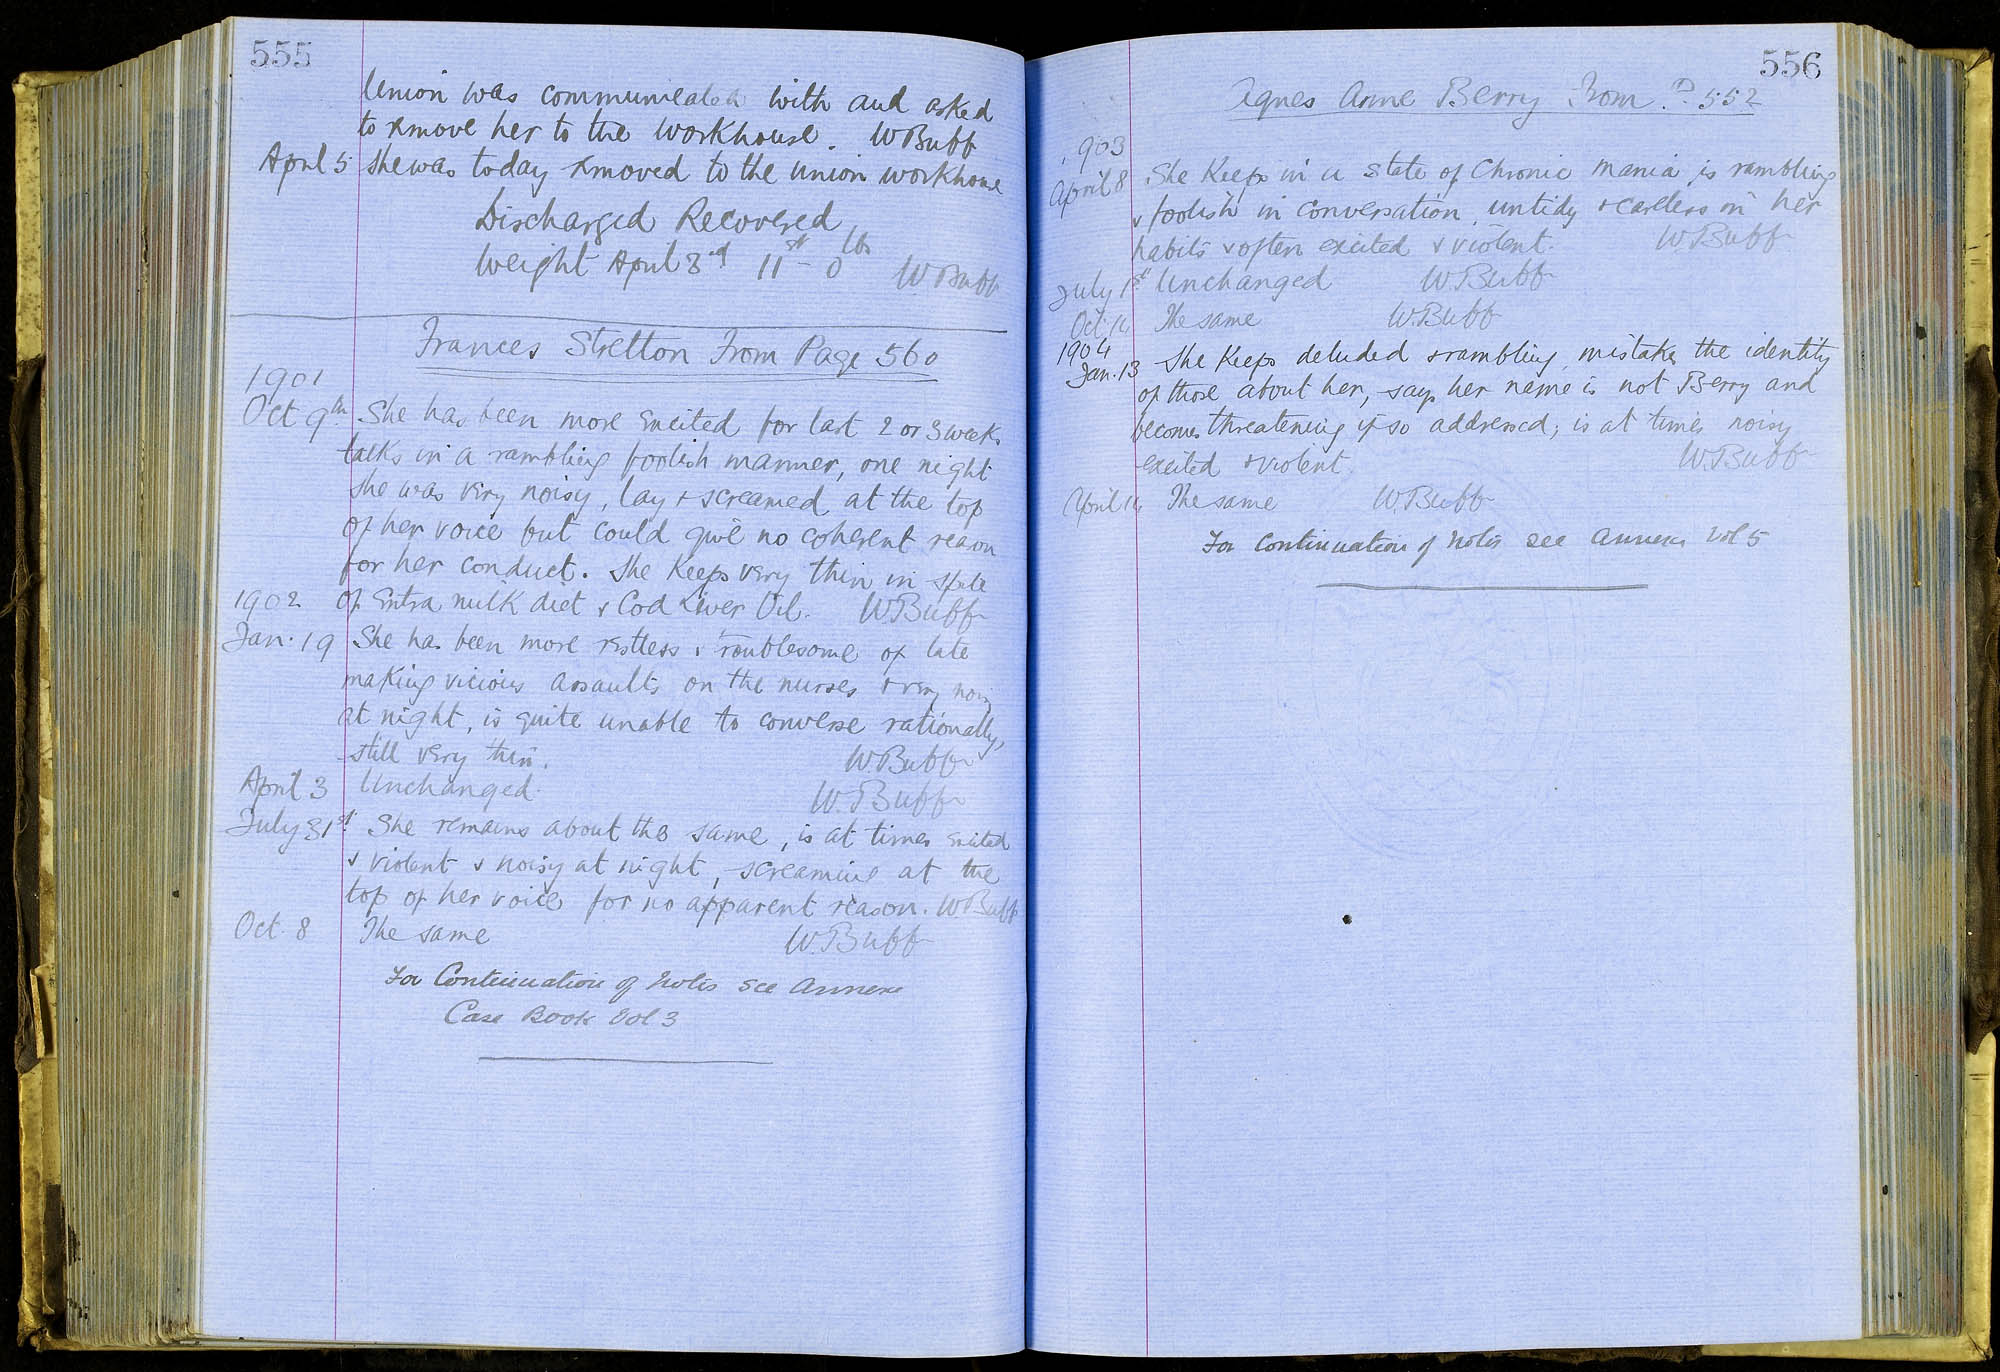 555
Union was communicated with and asked
to remove her to the workhouse. W Buff
April 5 She was today removed to the union workhouse
Discharged Recovered
Weight April 3rd 11st - 0 lbs W Buff
Frances Stretton From Page 560
1901
Oct 9th She has been more excited for last 2 or 3 weeks
talks in a rambling foolish manner, one night
she was very noisy, lay & screamed at the top
of her voice but could give no coherent reason
for her conduct. She keeps very thin in spite
1902 of Extra milk diet & Cod Liver Oil. W Buff
Jan. 19 She has been more restless & troublesome of late
making vicious assaults on the nurses & very noisy
at night, is quite unable to converse rationally,
still very thin. W. Buff
April 3 Unchanged. W. Buff
July 31st She remains about the same, is at times excited
& violent & noisy at night, screaming at the
top of her voice for no apparent reason. W Buff
Oct. 8 The same W. Buff
For Continuation of Notes see Annexe
Case Book Vol 3
556
Agnes Anne Berry From P 552
1903
April 8 She keeps in a state of Chronic mania is rambling
& foolish in conversation, untidy & careless in her
habits & often excited & violent. W. Buff
July 1st Unchanged W. Buff
Oct. 14 The same W. Buff
1904
Jan. 13 She keeps deluded & rambling, mistakes the identity
of those about her, says her name is not Berry and
becomes threatening if so addressed; is at times noisy
excited & violent. W. Buff
April 14 The same W. Buff
For Continuation of Notes see Annexe Vol 5